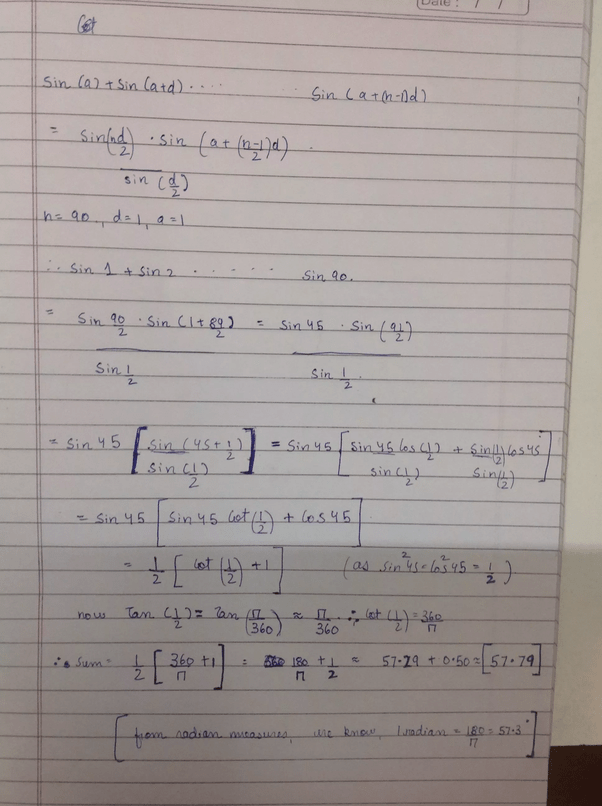 Date : / /
Cot
Sin (a) + Sin (a+d) . . . . Sin ( a + (n-1)d)
= Sin(nd/2) . Sin (a + (n-1/2)d) .
sin (d/2)
n = 90 , d=1, a=1
∴ Sin 1 + Sin 2 . . . . . . Sin 90.
= Sin 90/2 . Sin (1 + 89/2) = Sin 45 . Sin (91/2)
Sin 1/2 Sin 1/2 .
= Sin 45 [ Sin (45 + 1/2) ] = Sin 45 [ Sin 45 Cos(1/2) + Sin(1/2) Cos 45 ]
Sin (1/2) Sin (1/2) Sin(1/2)
= Sin 45 [ Sin 45 Cot (1/2) + Cos 45 ]
= 1/2 [ Cot (1/2) + 1 ] (as Sin²45 = Cos²45 = 1/2 )
now Tan (1/2) = Tan (π/360) ≈ π/360 ∴ Cot (1/2) = 360/π
∴ Sum = 1/2 [ 360/π + 1 ] = 180/π + 1/2 ≈ 57.29 + 0.50 = [ 57.79 ]
[ from radian measures, we know, 1 radian = 180/π = 57.3° ]